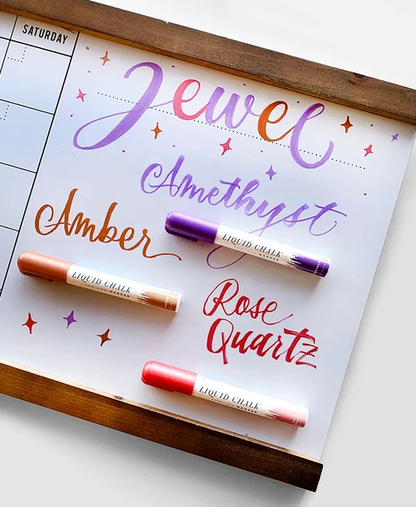 SATURDAY
Jewel
Amethyst
LIQUID CHALK
MARKER
Amber
LIQUID CHALK
MARKER
Rose
Quartz
LIQUID CHALK
MARKER